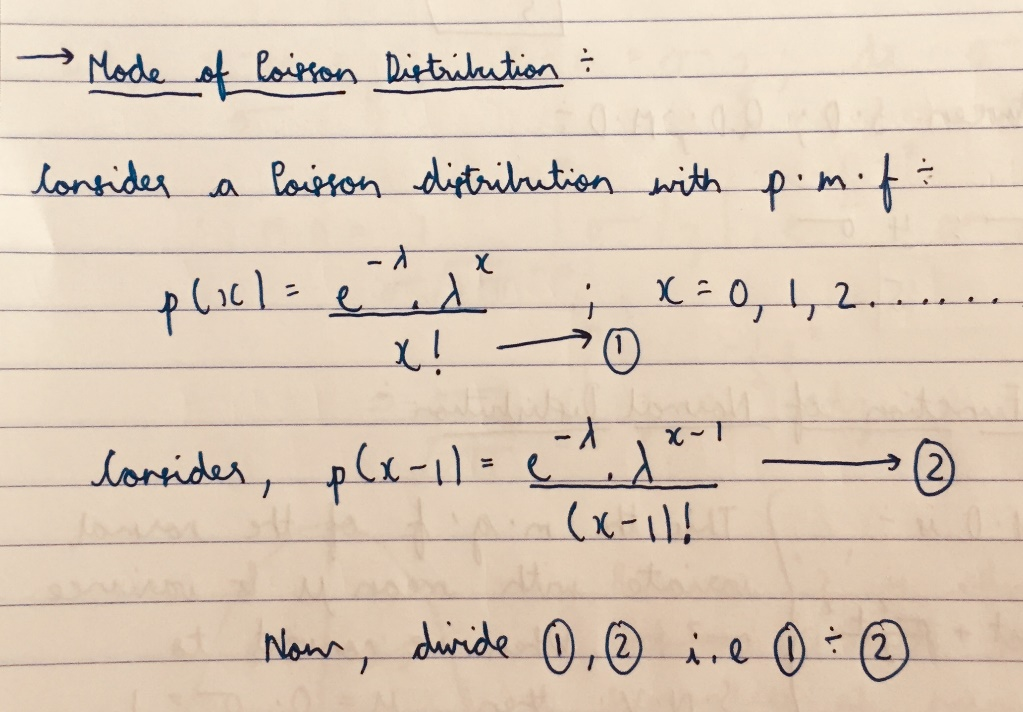 → Mode of Poisson Distribution ÷
Consider a Poisson distribution with p.m.f ÷
p(x) = e^-λ . λ^x / x! ; x = 0, 1, 2....... → ①
Consider, p(x-1) = e^-λ . λ^x-1 / (x-1)! → ②
Now, divide ①, ② i.e ① ÷ ②